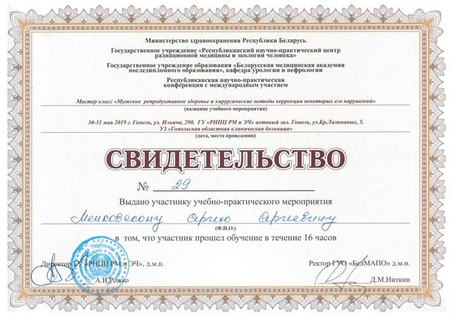 Министерство здравоохранения Республики Беларусь
Государственное учреждение «Республиканский научно-практический центр
радиационной медицины и экологии человека»
Государственное учреждение образования «Белорусская медицинская академия
последипломного образования», кафедра урологии и нефрологии
Республиканская научно-практическая
конференция с международным участием
Мастер класс «Мужское репродуктивное здоровье и хирургические методы коррекции некоторых его нарушений»
(название учебного мероприятия)
30-31 мая 2019 г. Гомель, ул. Ильича, 290. ГУ «РНПЦ РМ и ЭЧ» актовый зал. Гомель, ул.Бр.Лизюковых, 5.
УЗ «Гомельская областная клиническая больница»
(дата, место проведения)
СВИДЕТЕЛЬСТВО
№ 29
Выдано участнику учебно-практического мероприятия
Сергею Сергеевичу
(Ф.И.О.)
в том, что участник прошел обучение в течение 16 часов
Директор ГУ «РНПЦ РМ и ЭЧ», д.м.н.
Ректор ГУО «БелМАПО» д.м.н.
А.В.Рожко
Д.М.Ниткин